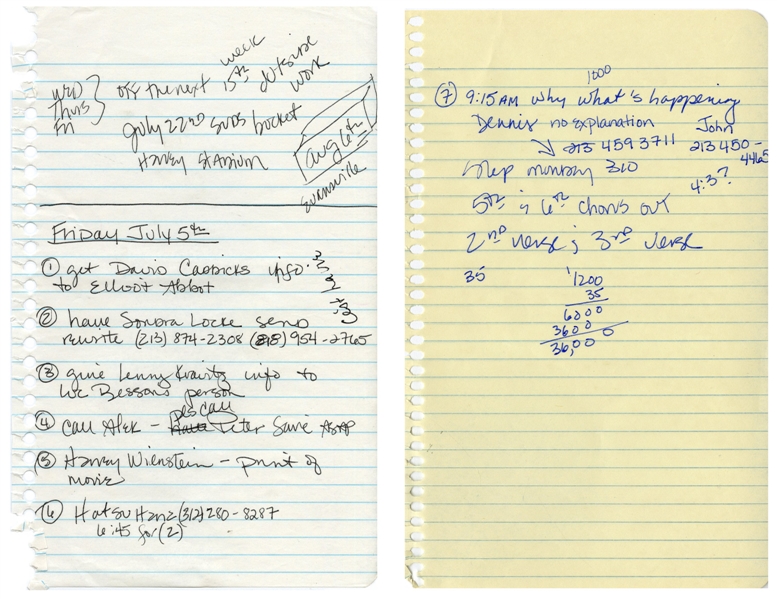 WED
Thurs
Fri
off the next week
15th outside
work
July 22nd
Harvey Stadium
Aug 6th
Evansville
Friday July 5th
① get David Cassicks info
to Elliot Abbot
② have Sondra Locke send
rewrite (213) 874-2308 (818) 954-2765
③ give Lenny Kravitz info to
Luc Bessons person
④ Call Alek - pls call Peter Savie ASAP
⑤ Harvey Wienstein - print of
movie
⑥ Hatsu Hana (312) 280-8287
6:45 for (2)
1000
⑦ 9:15 AM why what's happening
Dennis no explanation
213 459 3711
John
213 450-
4465
monday 310
4:3?
5th & 6th chorus out
2nd verse; 3rd verse
35
1200
35
6000
3600
36,000